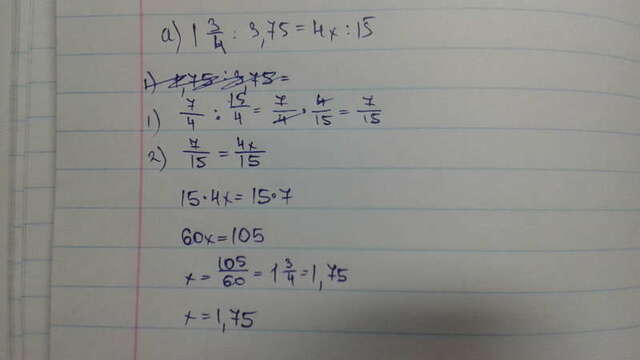 а) 1 3/4 : 3,75 = 4x : 15
1) 1,75 : 3,75 =
1) 7/4 : 15/4 = 7/4 · 4/15 = 7/15
2) 7/15 = 4x/15
15·4x = 15·7
60x = 105
x = 105/60 = 1 3/4 = 1,75
x = 1,75